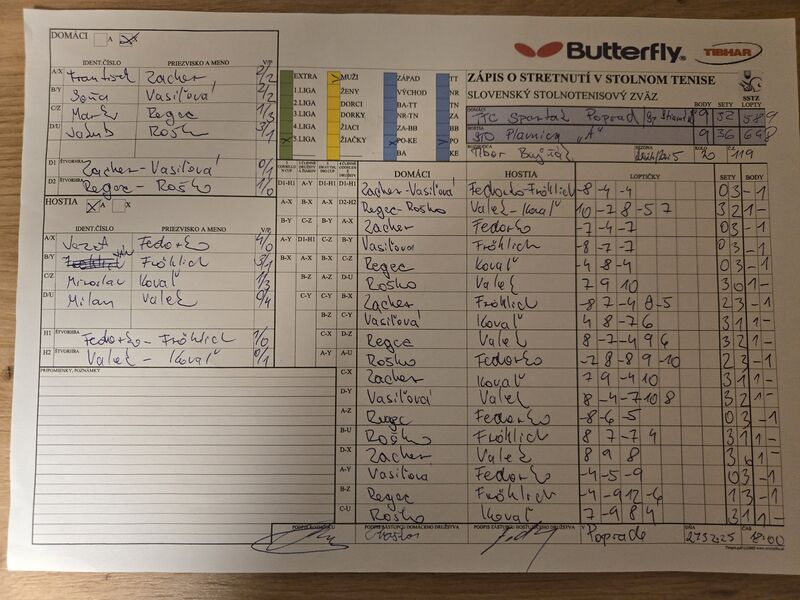 DOMÁCI A X
Butterfly
TIBHAR
IDENT.ČÍSLO PRIEZVISKO A MENO V/P
A/X František Zacher 2/2
B/Y Soňa Vasiľová 2/2
C/Z Marek Regec 1/3
D/U Jakub Roško 3/1
D1 ŠTVORHRA Zacher-Vasiľová 0/1
D2 Regec-Roško 1/0
HOSTIA X X
IDENT.ČÍSLO PRIEZVISKO A MENO V/P
A/X Jozef Fedorko 4/0
B/Y Fröhlich 3/1
C/Z Miroslav Kovaľ 1/3
D/U Milan Valek 0/4
H1 ŠTVORHRA Fedorko-Fröhlich 1/0
H2 ŠTVORHRA Valek - Kovaľ 0/1
PRIPOMIENKY, POZNÁMKY
EXTRA MUŽI ZÁPAD TT
1.LIGA ŽENY VÝCHOD NR
2.LIGA DORCI BA-TT TN
3.LIGA DORKY TN-NR ZA
4.LIGA ŽIACI ZA-BB BB
5.LIGA ŽIAČKY PO-KE PO
ZÁPIS O STRETNUTÍ V STOLNOM TENISE
SLOVENSKÝ STOLNOTENISOVÝ ZVÄZ
SSTZ
BODY SETY LOPTY
DOMÁCI TTC Spartak Poprad 9 32 589
HOSTIA STO Plavnica "A" 9 36 668
Tibor SEZÓNA KOLO 20 Č. 119
DOMÁCI HOSTIA LOPTIČKY SETY BODY
Zacher-Vasiľová Fedorko-Fröhlich -8 -4 -4 0 3 - 1
Regec-Roško Valek-Kovaľ 10 -7 8 -5 7 3 2 1 -
Zacher Fedorko -7 -4 -7 0 3 - 1
Vasiľová Fröhlich -8 -7 -7 0 3 - 1
Regec Kovaľ -4 -8 -4 0 3 - 1
Roško Valek 7 9 10 3 0 1 -
Zacher Fröhlich -8 7 -4 8 -5 2 3 - 1
Vasiľová Kovaľ 4 8 -7 6 3 1 1 -
Regec Valek 8 -7 -4 9 6 3 2 1 -
Roško Fedorko -7 8 -8 9 -10 2 3 - 1
Zacher Kovaľ 7 9 -4 10 3 1 1 -
Vasiľová Valek 8 -4 -7 10 8 3 2 1 -
Regec Fedorko -8 -6 -5 0 3 - 1
Roško Fröhlich 8 7 -7 4 3 1 1 -
Zacher Valek 8 9 8 3 0 1 -
Vasiľová Fedorko -4 -5 -9 0 3 - 1
Regec Fröhlich -4 -9 12 -6 1 3 - 1
Roško Kovaľ 7 -9 8 4 3 1 1 -
PODPIS ROZHODCU PODPIS ZÁSTUPCU DOMÁCEHO DRUŽSTVA PODPIS ZÁSTUPCU HOSŤUJÚCEHO DRUŽSTVA V Poprade DŇA 2732025 ČAS 18:00